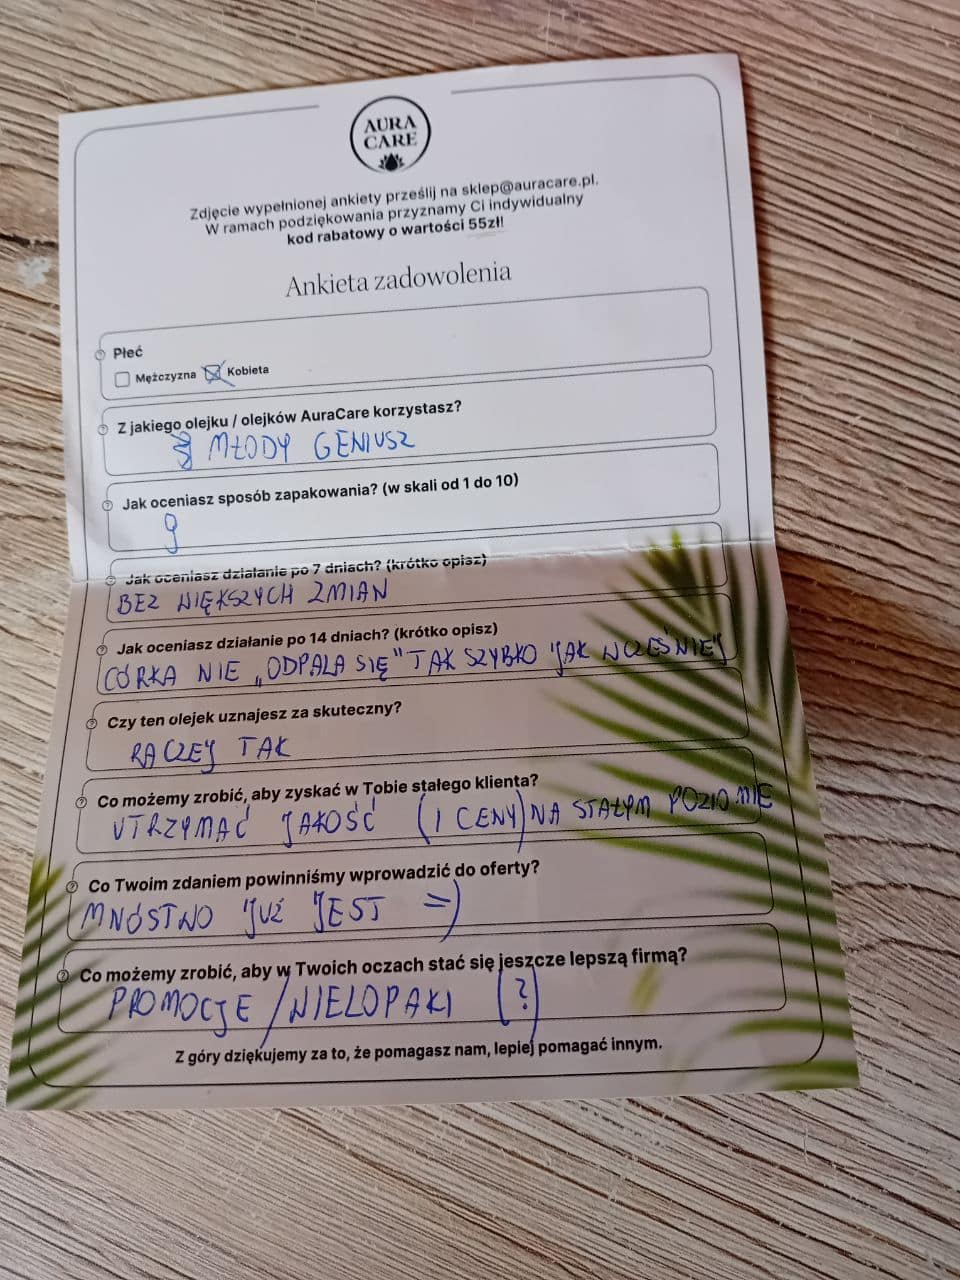 AURA
CARE
Zdjęcie wypełnionej ankiety prześlij na sklep@auracare.pl.
W ramach podziękowania przyznamy Ci indywidualny
kod rabatowy o wartości 55zł!
Ankieta zadowolenia
Płeć
Mężczyzna Kobieta
Z jakiego olejku / olejków AuraCare korzystasz?
MŁODY GENIUSZ
Jak oceniasz sposób zapakowania? (w skali od 1 do 10)
9
Jak oceniasz działanie po 7 dniach? (krótko opisz)
BEZ WIĘKSZYCH ZMIAN
Jak oceniasz działanie po 14 dniach? (krótko opisz)
CÓRKA NIE „ODPALA SIĘ" TAK SZYBKO JAK WCZEŚNIEJ
Czy ten olejek uznajesz za skuteczny?
RACZEJ TAK
Co możemy zrobić, aby zyskać w Tobie stałego klienta?
UTRZYMAĆ JAKOŚĆ (I CENY) NA STAŁYM POZIOMIE
Co Twoim zdaniem powinniśmy wprowadzić do oferty?
MNÓSTWO JUŻ JEST =)
Co możemy zrobić, aby w Twoich oczach stać się jeszcze lepszą firmą?
PROMOCJE / WIELOPAKI (?)
Z góry dziękujemy za to, że pomagasz nam, lepiej pomagać innym.